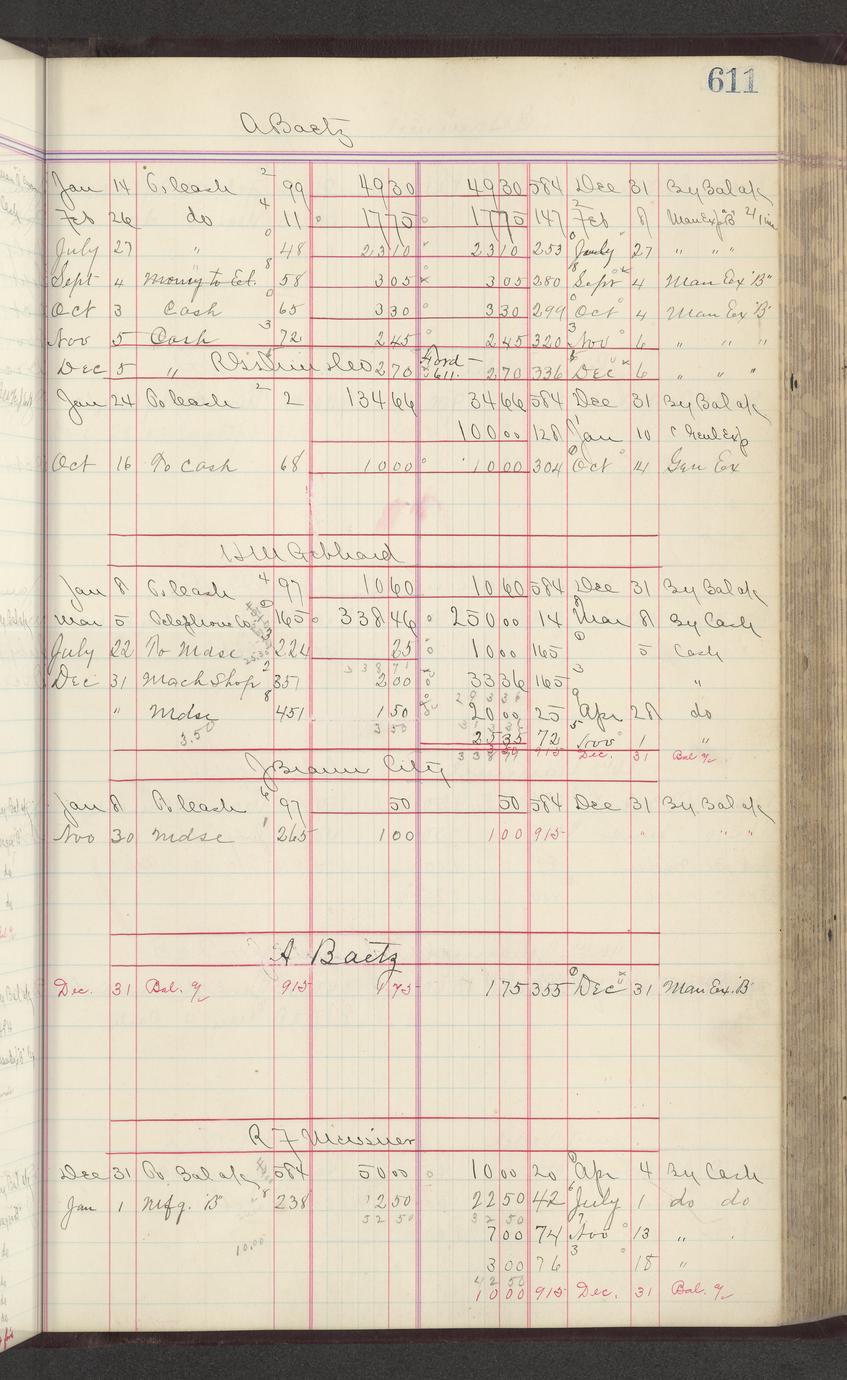 611
A Baetz
Jan 14 To Cash 2 99 49 30 49 30 584 Dec 31 By Bal a/c
Feb 26 do 4 11 17 75 17 75 147 Feb 8 Man Exp "B"
July 27 " 0 48 23 10 23 10 253 July 27 " " "
Sept 4 Money to Est. 8 58 3 05 3 05 280 Sept 4 Man Ex "B"
Oct 3 Cash 0 65 3 30 3 30 299 Oct 4 Man Ex "B"
Nov 5 Cash 3 72 2 45 2 45 320 Nov 6 " " "
Dec 5 " 2 70 Ford 611. 2 70 336 Dec 6 " " "
Jan 24 To Cash 2 2 134 66 34 66 584 Dec 31 By Bal a/c
100 00 128 Jan 10 " Genl Exp
Oct 16 To Cash 68 10 00 10 00 304 Oct 14 Gen Ex
H M Gebhard
Jan 8 To Cash 4 97 10 60 10 60 584 Dec 31 By Bal a/c
Mar 5 Telephone Co 165 338 46 250 00 14 Mar 8 By Cash
July 22 To Mdse 3 224 25 10 00 165 5 Cash
338 71
Dec 31 Mach Shop 2 357 2 00 33 36 165 "
293 36
" Mdse 8 451 1 50 20 00 25 Apr 28 do
3.50 3 50 313 36
25 35 72 Nov 1 "
3 50 915 Dec. 31 Bal a/c
338 71
J Braun City
Jan 8 To Cash 6 97 50 50 584 Dec 31 By Bal a/c
Nov 30 Mdse 1 265 1 00 1 00 915 " " "
A Baetz
Dec. 31 Bal. a/c 915 1 75 1 75 355 Dec 31 Man Ex. "B"
R F Messner
Dec 31 To Bal a/c 584 50 00 10 00 20 Apr 4 By Cash
Jan 1 Mfg. "B" 8 238 2 50 22 50 42 July 1 do do
52 50 32 50
7 00 74 Nov 13 "
10.00
3 00 76 18 "
42 50
10 00 915 Dec. 31 Bal. a/c